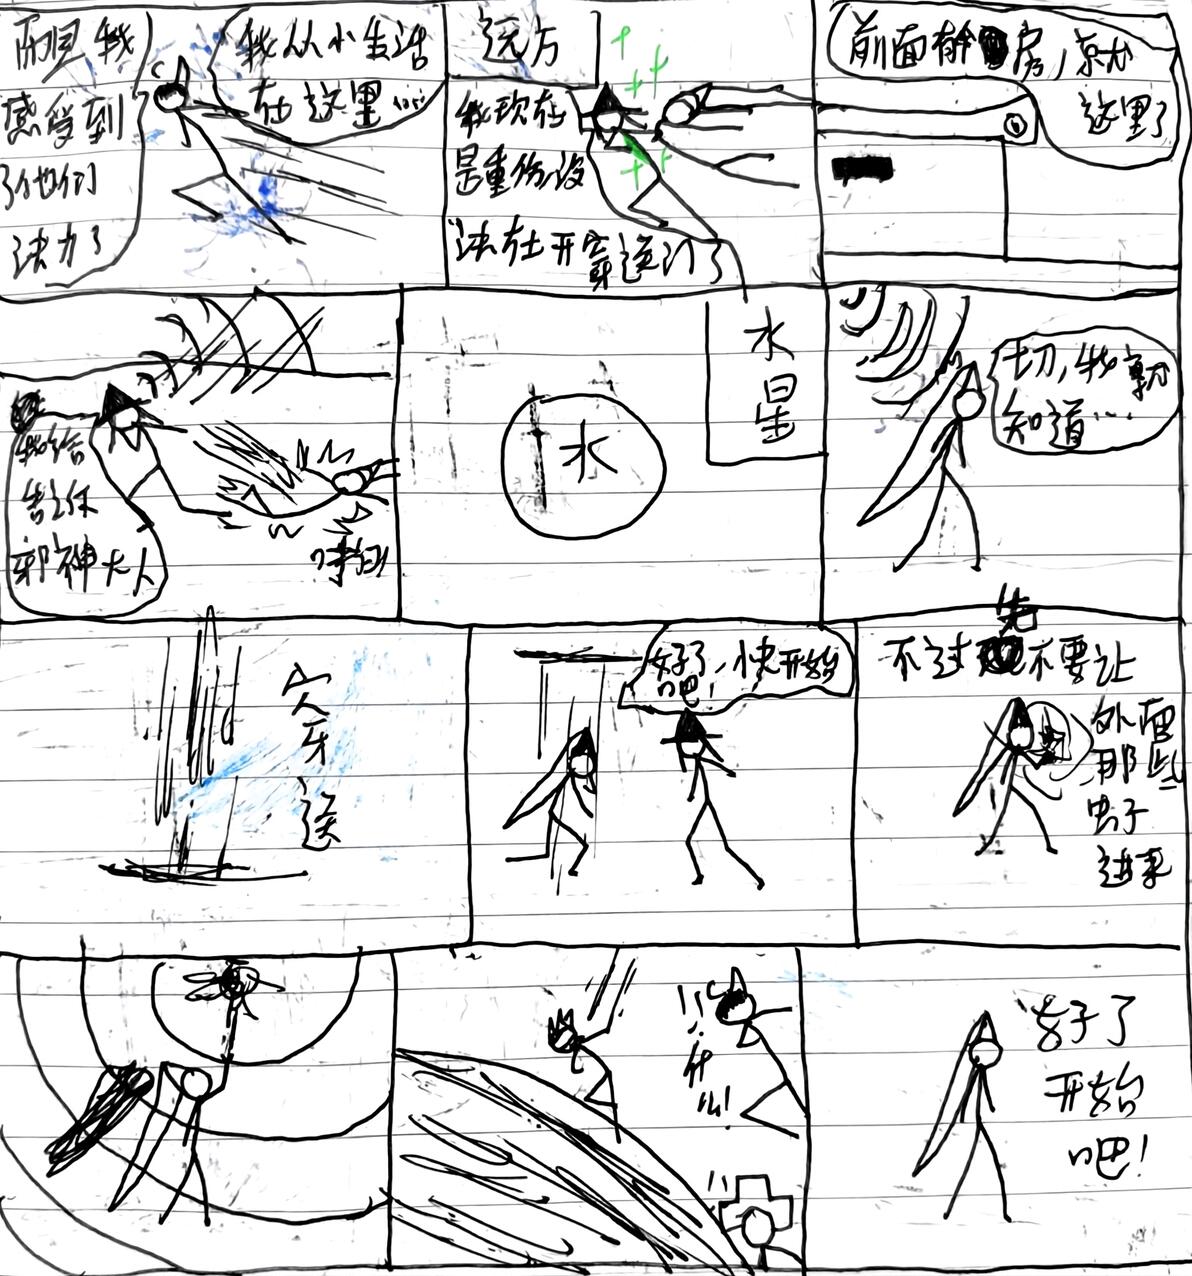 我
感受到
了他们
法力了
我从小生活
在这里……
远方
我现在
是重伤没
法在开穿送门了
前面有
房，京尤
这里了
我给
告诉
邪神大人
水
水
星
切，我就
知道…
穴
牙
送
好了，快开始
吧！
先
不过不要让
外面
那些
虫子
进来
什
么！
好了
开始
吧！